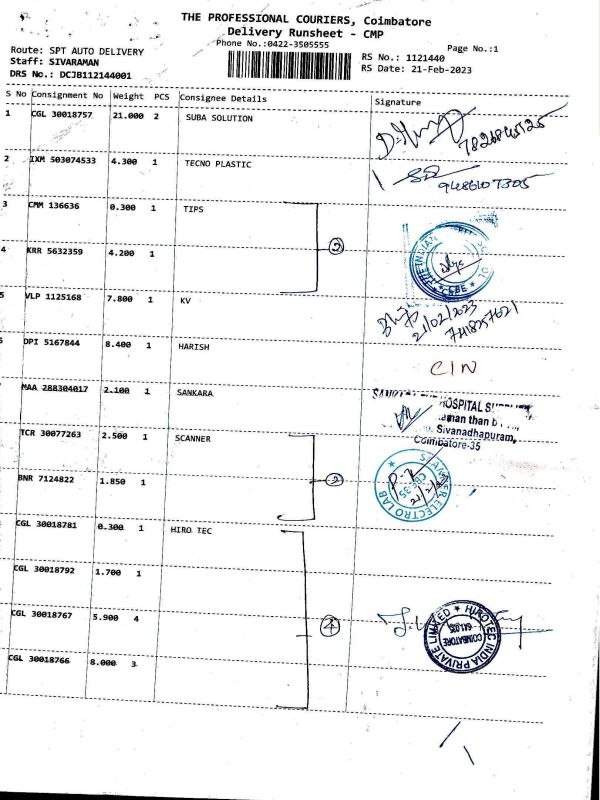 THE PROFESSIONAL COURIERS, Coimbatore
Delivery Runsheet - CMP
Phone No.:0422-3505555
Page No.:1
Route: SPT AUTO DELIVERY
Staff: SIVARAMAN
DRS No.: DCJB112144001
RS No.: 1121440
RS Date: 21-Feb-2023
S No Consignment No Weight PCS Consignee Details Signature
1 CGL 30018757 21.000 2 SUBA SOLUTION
2 IXM 503074533 4.300 1 TECNO PLASTIC
3 CMM 136636 0.300 1 TIPS
4 KRR 5632359 4.200 1
THE INDIAN
CBE
5 VLP 1125168 7.800 1 KV
21/02/2023
6 DPI 5167844 8.400 1 HARISH
CIN
7 MAA 288304017 2.100 1 SANKARA
HOSPITAL
Sivanadhapuram,
Coimbatore-35
TCR 30077263 2.500 1 SCANNER
BNR 7124822 1.850 1
2
SCANNER ELECTRO LAB
CBE-35
CGL 30018781 0.300 1 HIRO TEC
CGL 30018792 1.700 1
CGL 30018767 5.900 4
4
HIROTEC INDIA PRIVATE LIMITED
COIMBATORE
641 035
CGL 30018766 8.000 3